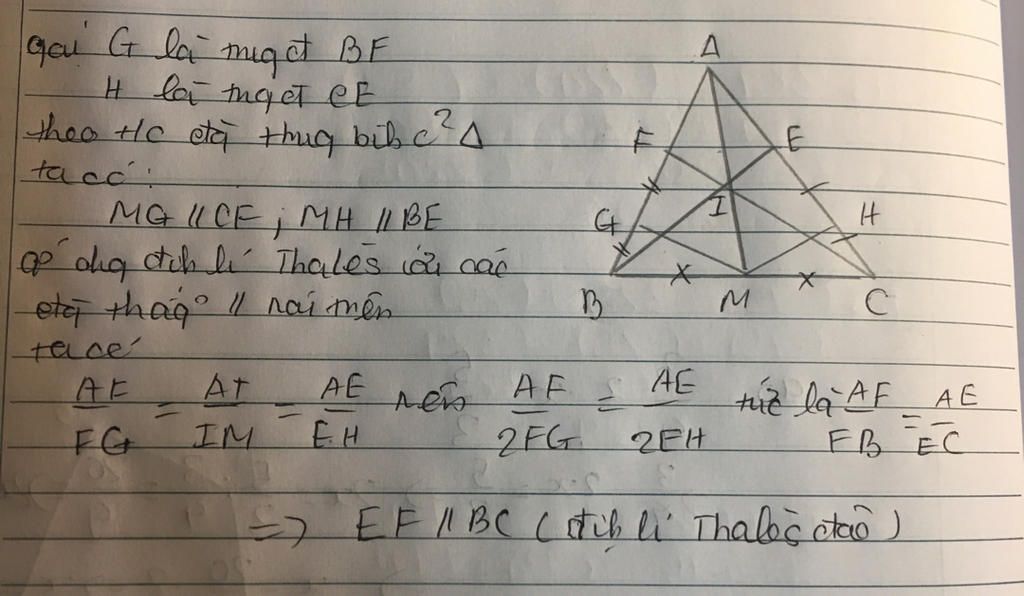 gọi G là trung đ BF
H là trung đ CE
theo t/c đg trung bình c² Δ
ta có:
MG // CF ; MH // BE
áp dụng định lí Thales với các
đg thẳg // nói trên
ta có
AF/FG = AI/IM = AE/EH nên AF/2FG = AE/2EH tức là AF/FB = AE/EC
=> EF // BC (định lí Thalès đảo)
A
F
E
I
G
H
B
M
C